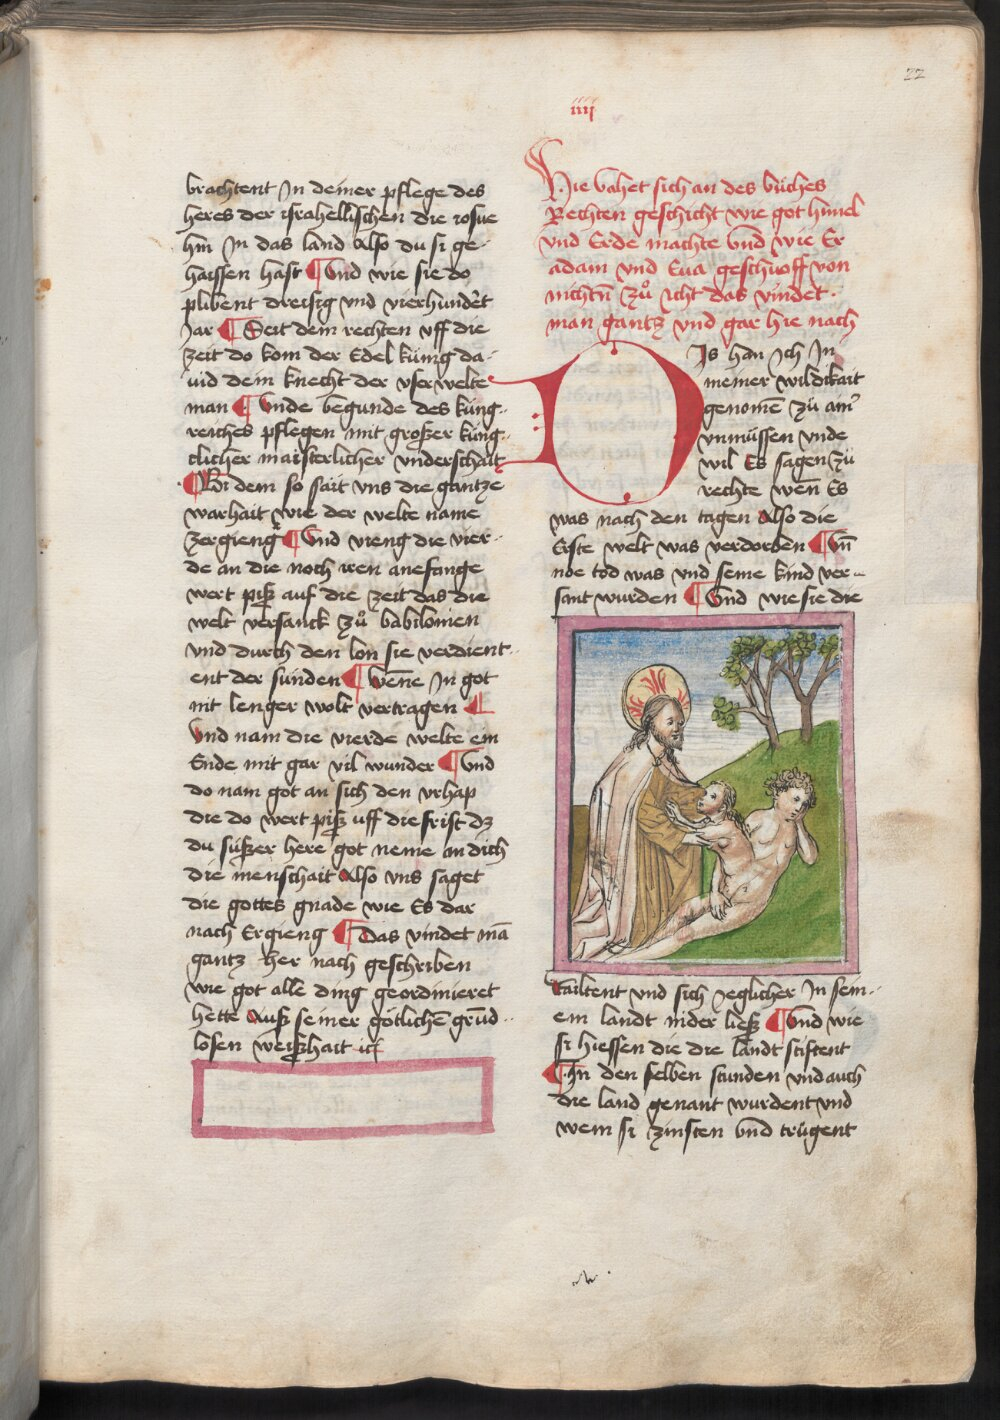 22
iiij
brachtent In deiner pflege des
heres der israhellischen die iosue
hin In das land Also du si ge-
haissen hast Und wie sie do
plibent dreisig vnd vierhundert
Jar Seit dem rechten vff die
zeit do kom der Edel küng da-
uid dein knecht der vserwelte
man Unde begunde des küng-
reiches pflegen mit großer küng-
clicher maisterlicher vnderschait
Bi dem so sait vns die gantze
warhait wie der welte name
zergieng Und vieng die vier-
de an die noch iren anefange
wert piß auf die zeit das die
welt versanck zů babilonien
vnd durch den lon sie verdient-
ent der sunden Wene In got
nit lenger wolt vertragen
Und nam die vierde welte ein
Ende mit gar vil wunder Und
do nam got an sich den vrhap
die do wert piß uff die frist dz
du süßer here got neme an dich
die menschait Also vns saget
die gottes gnade wie Es dar
nach Ergieng Das vindet mā
gantz her nach geschriben
wie got alle ding geordinieret
hette Auß seiner götlichē grūd-
losen weißhait
Hie vahet sich an des büches
Rechten geschicht wie got himel
vnd Erde machte vnd wie Er
adam vnd Eua geschuoff von
nichtñ zů icht das vindet
man gantz vnd gar hie nach
DIs han Ich In
meiner wildikait
genomē zů
vnmüssen vnde
wil Es sagen zü
rechte wēn Es
was nach den tagen Also die
Erste welt was verdorben Vñ
noe tod was vnd seine kind ver-
sant wurden Vnd wie sie die
tailtent vnd sich Jeglicher In sein-
em landt nider ließ Und wie
si hiessen die die landt stiftent
In den selben stunden vnd auch
die land genant wurdent vnd
wem si zinsten vnd trügent